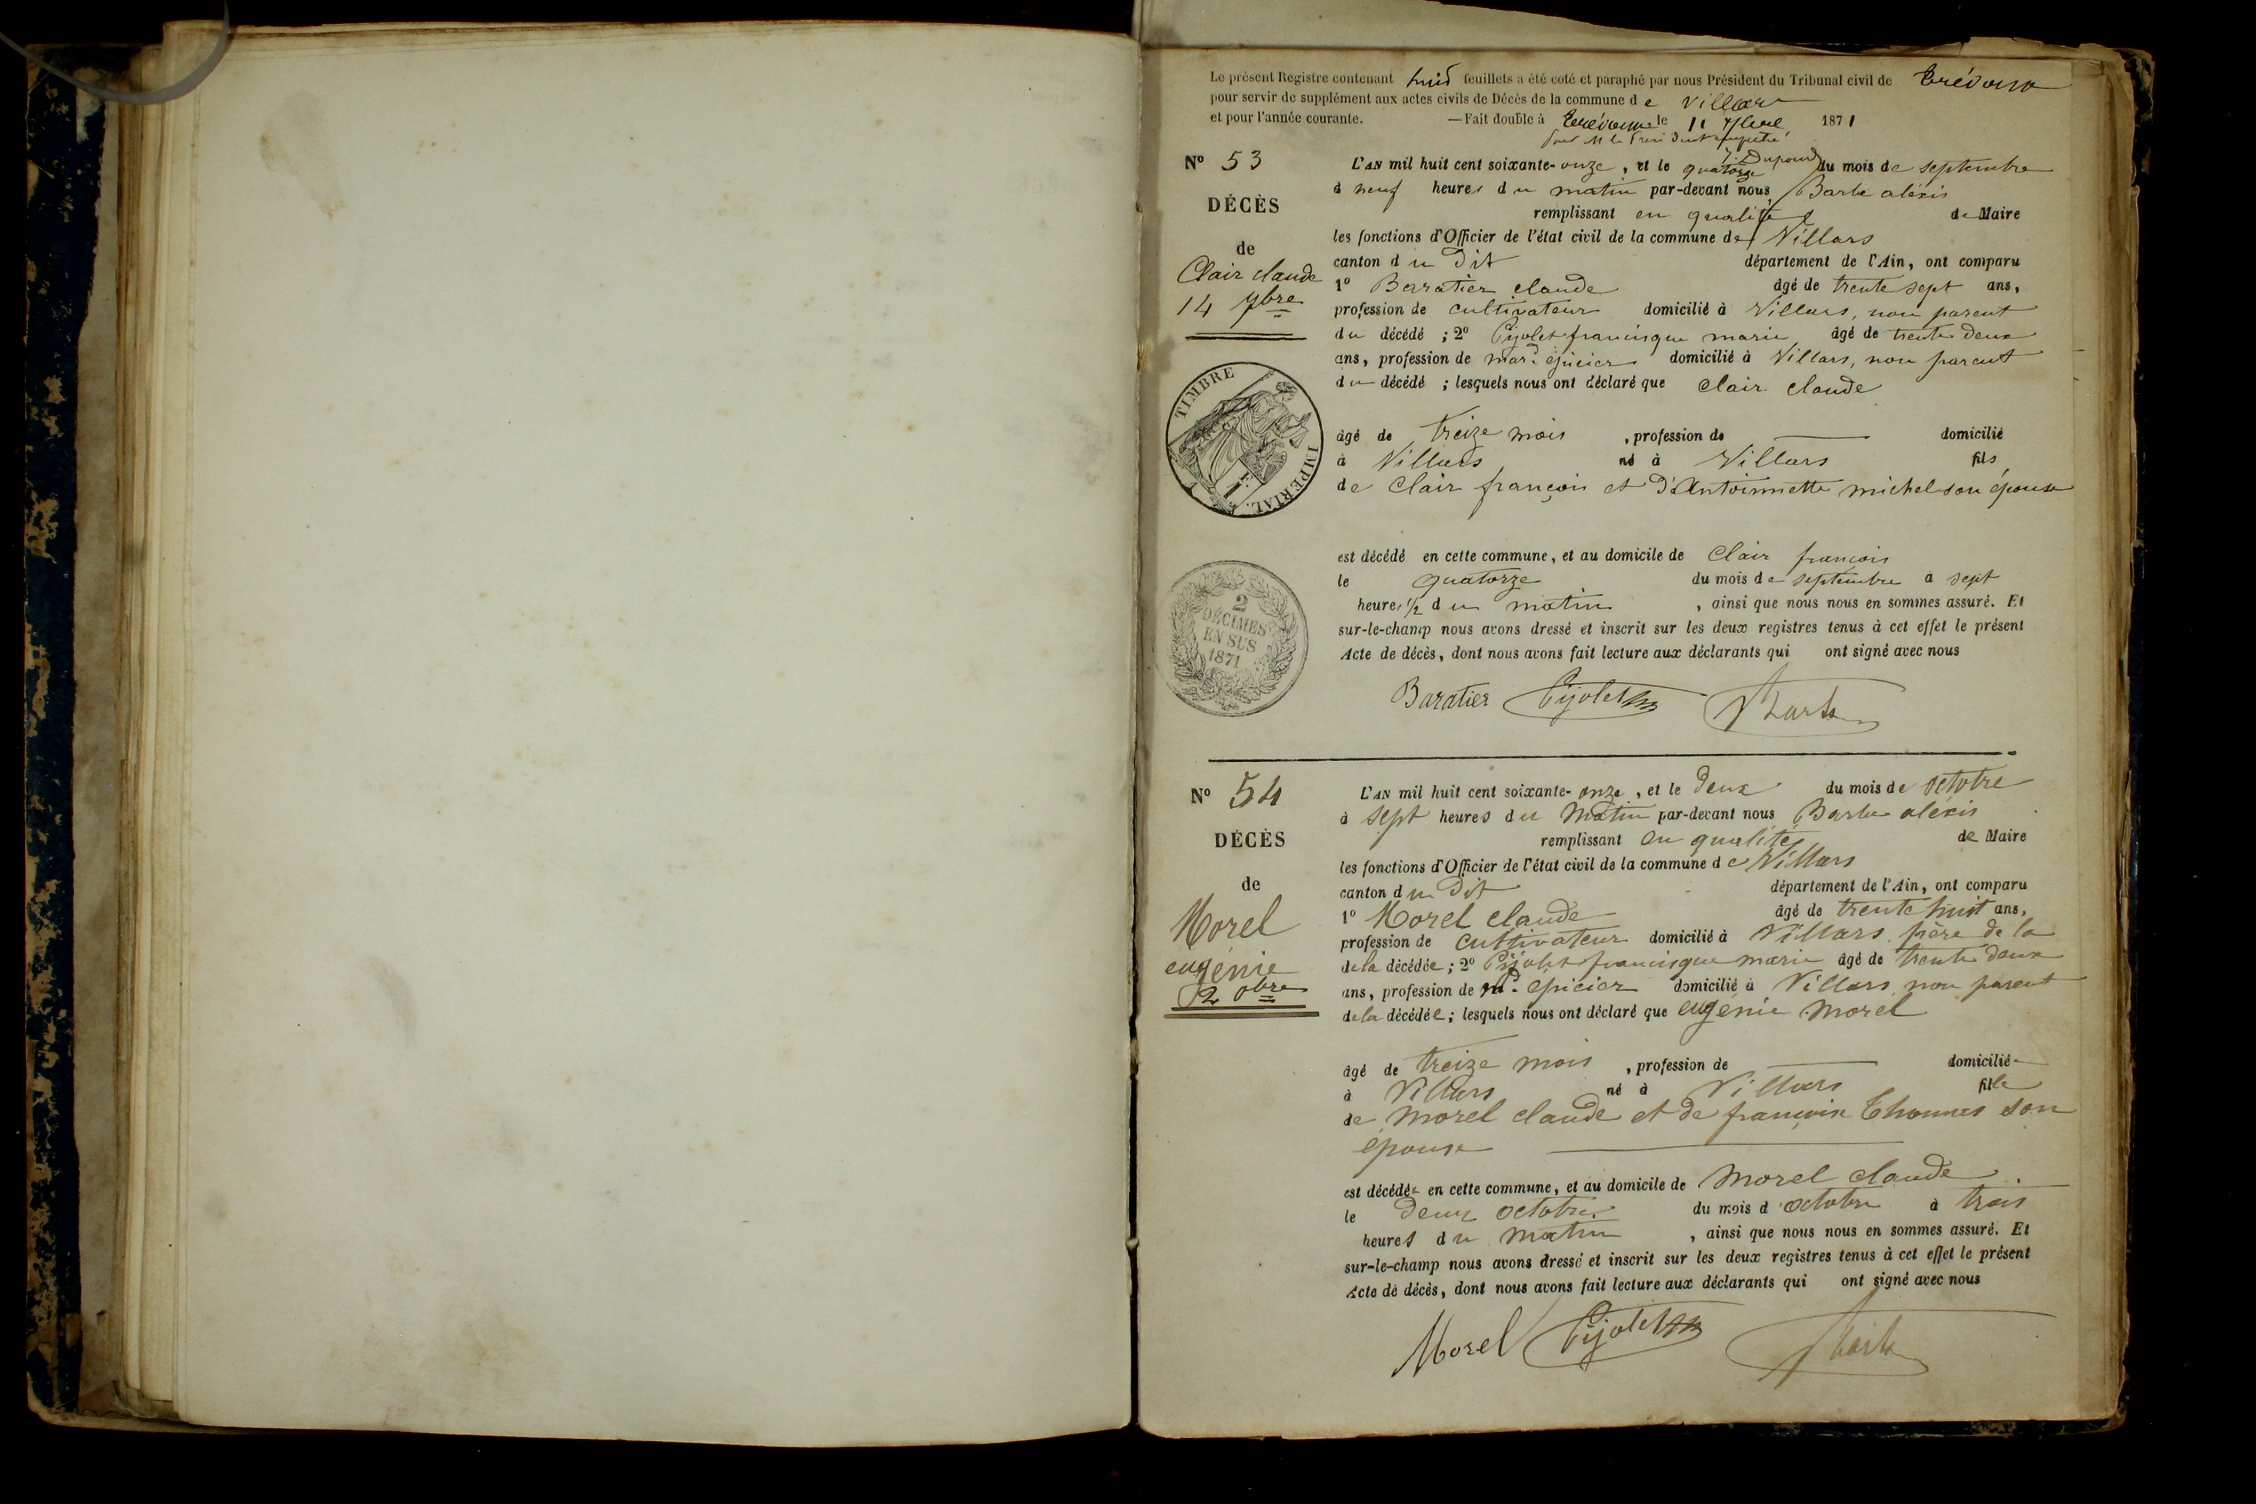 Le présent Registre contenant huit feuillets a été coté et paraphé par nous Président du Tribunal civil de Trévoux
pour servir de supplément aux actes civils de Décès de la commune de Villars
et pour l'année courante. — Fait double à Trévoux le 11 7bre 1871
pour M le Président empêché
Dupond
N° 53
DÉCÈS
de
Clair claude
14 7bre
TIMBRE IMPERIAL
2
DÉCIMES
EN SUS
1871
L'AN mil huit cent soixante-onze, et le quatorze du mois de septembre
à neuf heures du matin par-devant nous Barbe aléxis
remplissant en qualité de Maire
les fonctions d'Officier de l'état civil de la commune de Villars
canton du dit département de l'Ain, ont comparu
1° Berratier claude âgé de trente sept ans,
profession de cultivateur domicilié à Villars, non parent
du décédé ; 2° Pijolet francisque marie âgé de trente deux
ans, profession de mard. épicier domicilié à Villars, non parent
du décédé ; lesquels nous ont déclaré que clair claude
âgé de treize mois, profession de — domicilié
à Villars né à Villars fils
de Clair françois et d'Antoinnette michel son épouse
est décédé en cette commune, et au domicile de Clair françois
le quatorze du mois de septembre à sept
heures 1/2 du matin, ainsi que nous nous en sommes assuré. Et
sur-le-champ nous avons dressé et inscrit sur les deux registres tenus à cet effet le présent
Acte de décès, dont nous avons fait lecture aux déclarants qui ont signé avec nous
Baratier Pijolet Barbe
N° 54
DÉCÈS
de
Morel
eugénie
2 8bre
L'AN mil huit cent soixante-onze, et le deux du mois de octobre
à sept heures du Matin par-devant nous Barbe aléxis
remplissant en qualité de Maire
les fonctions d'Officier de l'état civil de la commune de Villars
canton du dit département de l'Ain, ont comparu
1° Morel claude âgé de trente huit ans,
profession de cultivateur domicilié à Villars père de la
de la décédée ; 2° Pijolet francisque marie âgé de trente deux
ans, profession de md. épicier domicilié à Villars non parent
de la décédée ; lesquels nous ont déclaré que eugénie Morel
âgé de treize mois, profession de — domicilié
à Villars né à Villars fille
de Morel claude et de françoise Thomas son
épouse
est décédée en cette commune, et au domicile de Morel claude
le deux octobre du mois d octobre à trois
heures du matin, ainsi que nous nous en sommes assuré. Et
sur-le-champ nous avons dressé et inscrit sur les deux registres tenus à cet effet le présent
Acte de décès, dont nous avons fait lecture aux déclarants qui ont signé avec nous
Morel Pijolet Barbe